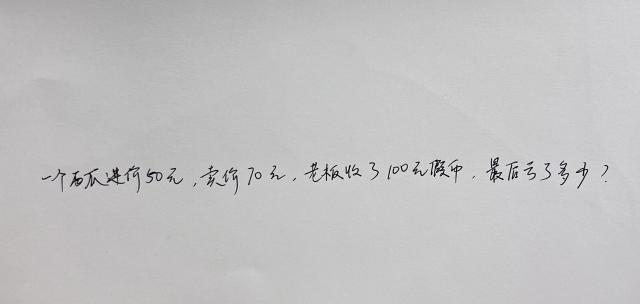 一个西瓜进价50元，卖价70元，老板收了100元假币，最后亏了多少？